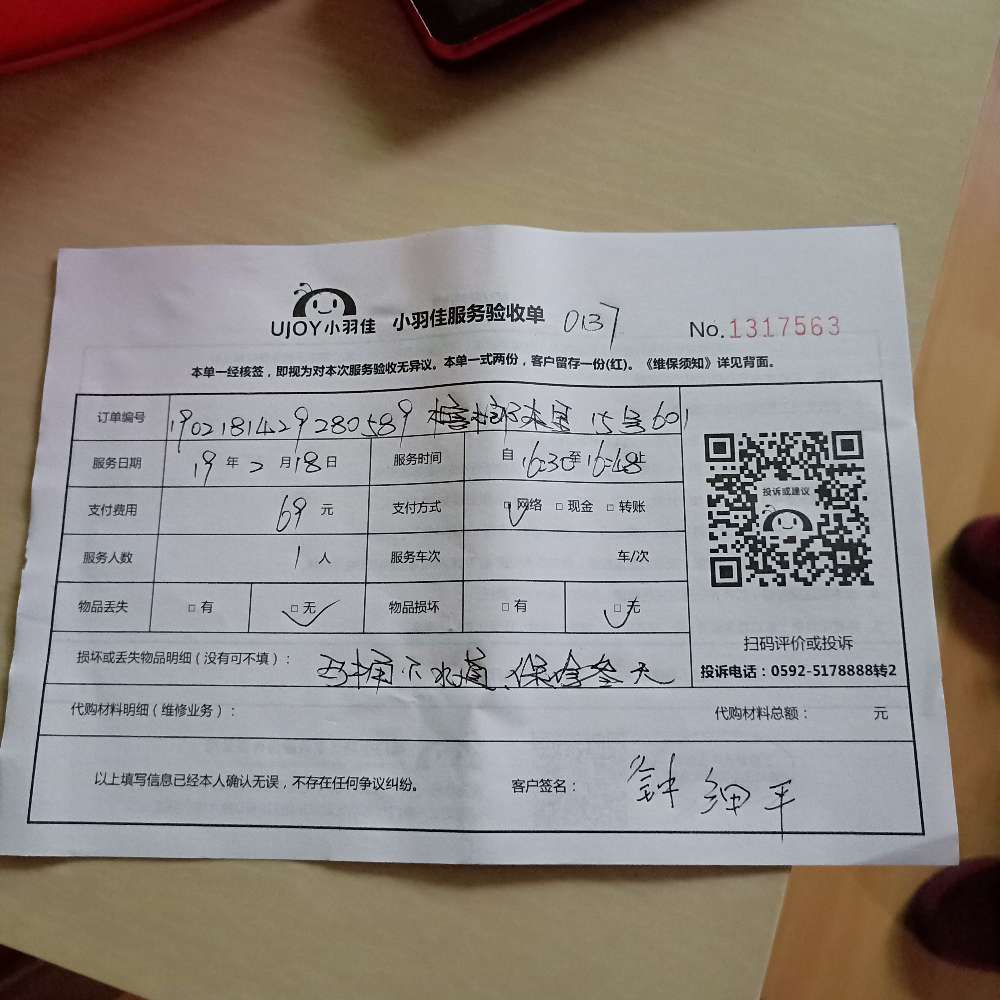 UJOY小羽佳 小羽佳服务验收单 0137 No.1317563
本单一经核签，即视为对本次服务验收无异议。本单一式两份，客户留存一份(红)。《维保须知》详见背面。
订单编号 190218142928058 9 15号601
服务日期 19年2月18日 服务时间 自16:30至16:48止
支付费用 69元 支付方式 □网络 □现金 □转账
服务人数 1人 服务车次 车/次
物品丢失 □有 □无 物品损坏 □有 □无
投诉或建议
扫码评价或投诉
投诉电话：0592-5178888转2
损坏或丢失物品明细（没有可不填）： 马桶下水道、保修叁天
代购材料明细（维修业务）： 代购材料总额： 元
以上填写信息已经本人确认无误，不存在任何争议纠纷。 客户签名： 钟细平